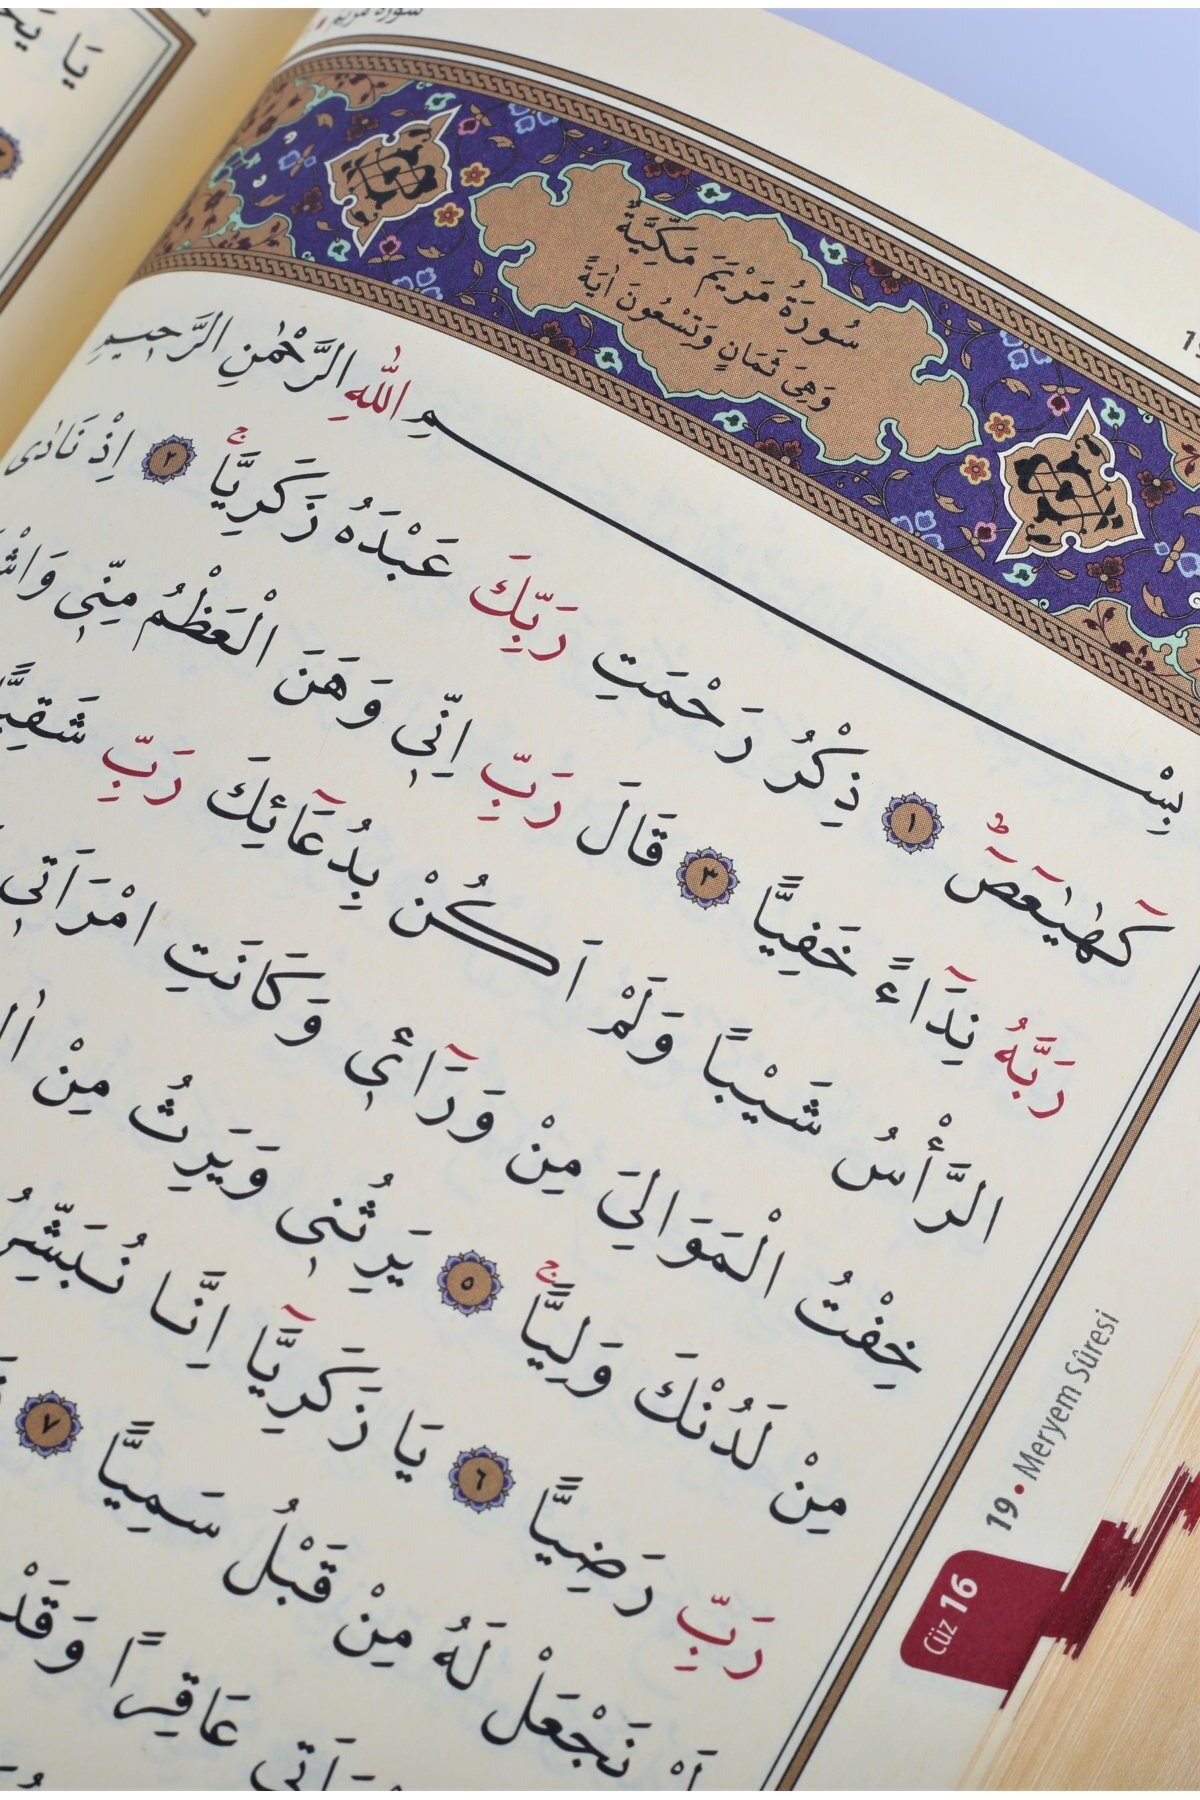 سُورَةُ مَرْيَمَ مَكِّيَّةٌ
وَهِيَ ثَمَانٍ وَتَسْعُونَ اٰيَةً
بِسْمِ اللّٰهِ الرَّحْمٰنِ الرَّحِيمِ
كٓهٰيٰعٓصٓ ﴿١﴾ ذِكْرُ رَحْمَتِ رَبِّكَ عَبْدَهُ زَكَرِيَّاۚ ﴿٢﴾ اِذْ نَادٰى
رَبَّهُ نِدَٓاءً خَفِيًّا ﴿٣﴾ قَالَ رَبِّ اِنّ۪ي وَهَنَ الْعَظْمُ مِنّ۪ي
الرَّأْسُ شَيْبًا وَلَمْ اَكُنْ بِدُعَٓائِكَ رَبِّ شَقِيًّا
خِفْتُ الْمَوَالِيَ مِنْ وَرَٓائ۪ي وَكَانَتِ امْرَاَت۪ي
مِنْ لَدُنْكَ وَلِيًّاۚ ﴿٥﴾ يَرِثُن۪ي وَيَرِثُ مِنْ
رَبِّ رَضِيًّا ﴿٦﴾ يَا زَكَرِيَّٓا اِنَّا نُبَشِّرُ
نَجْعَلْ لَهُ مِنْ قَبْلُ سَمِيًّا ﴿٧﴾
عَاقِرًا وَقَدْ
19 • Meryem Sûresi
Cüz 16